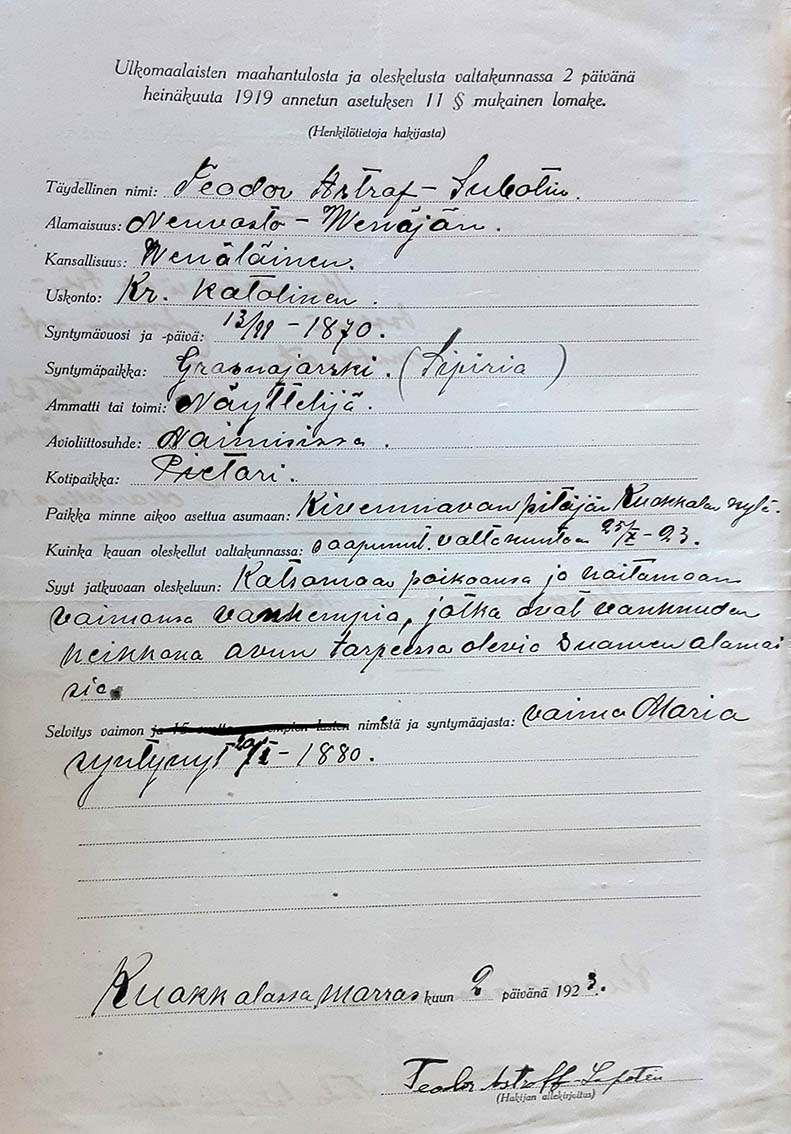 Ulkomaalaisten maahantulosta ja oleskelusta valtakunnassa 2 päivänä
heinäkuuta 1919 annetun asetuksen 11 § mukainen lomake.
(Henkilötietoja hakijasta)
Täydellinen nimi: Teodor Astraf - Subotin.
Alamaisuus: Neuvosto - Wenäjän.
Kansallisuus: Wenäläinen.
Uskonto: Kr. katolinen.
Syntymävuosi ja -päivä: - 1870.
Syntymäpaikka: Grasnojarski. (Sipiria)
Ammatti tai toimi: Näyttelijä.
Avioliittosuhde: Naimisissa.
Kotipaikka: Pietari.
Paikka minne aikoo asettua asumaan: Kivennavan pitäjän Kuokkalan kylä.
Kuinka kauan oleskellut valtakunnassa: saapunut valtakuntaan 25/X - 23.
Syyt jatkuvaan oleskeluun: Katsomaan poikaansa ja hoitamaan
vaimonsa vanhempia, jotka ovat vanhuuden
heikkona avun tarpeessa olevia Suomen alamai
sia.
Selvitys vaimon ja 15 vuotta lasten nimistä ja syntymäajasta: vaimo Maria
syntynyt - 1880.
Kuokkalassa, marras kuun 2 päivänä 1923.
Teodor Astroff-Sapotin
(Hakijan allekirjoitus)